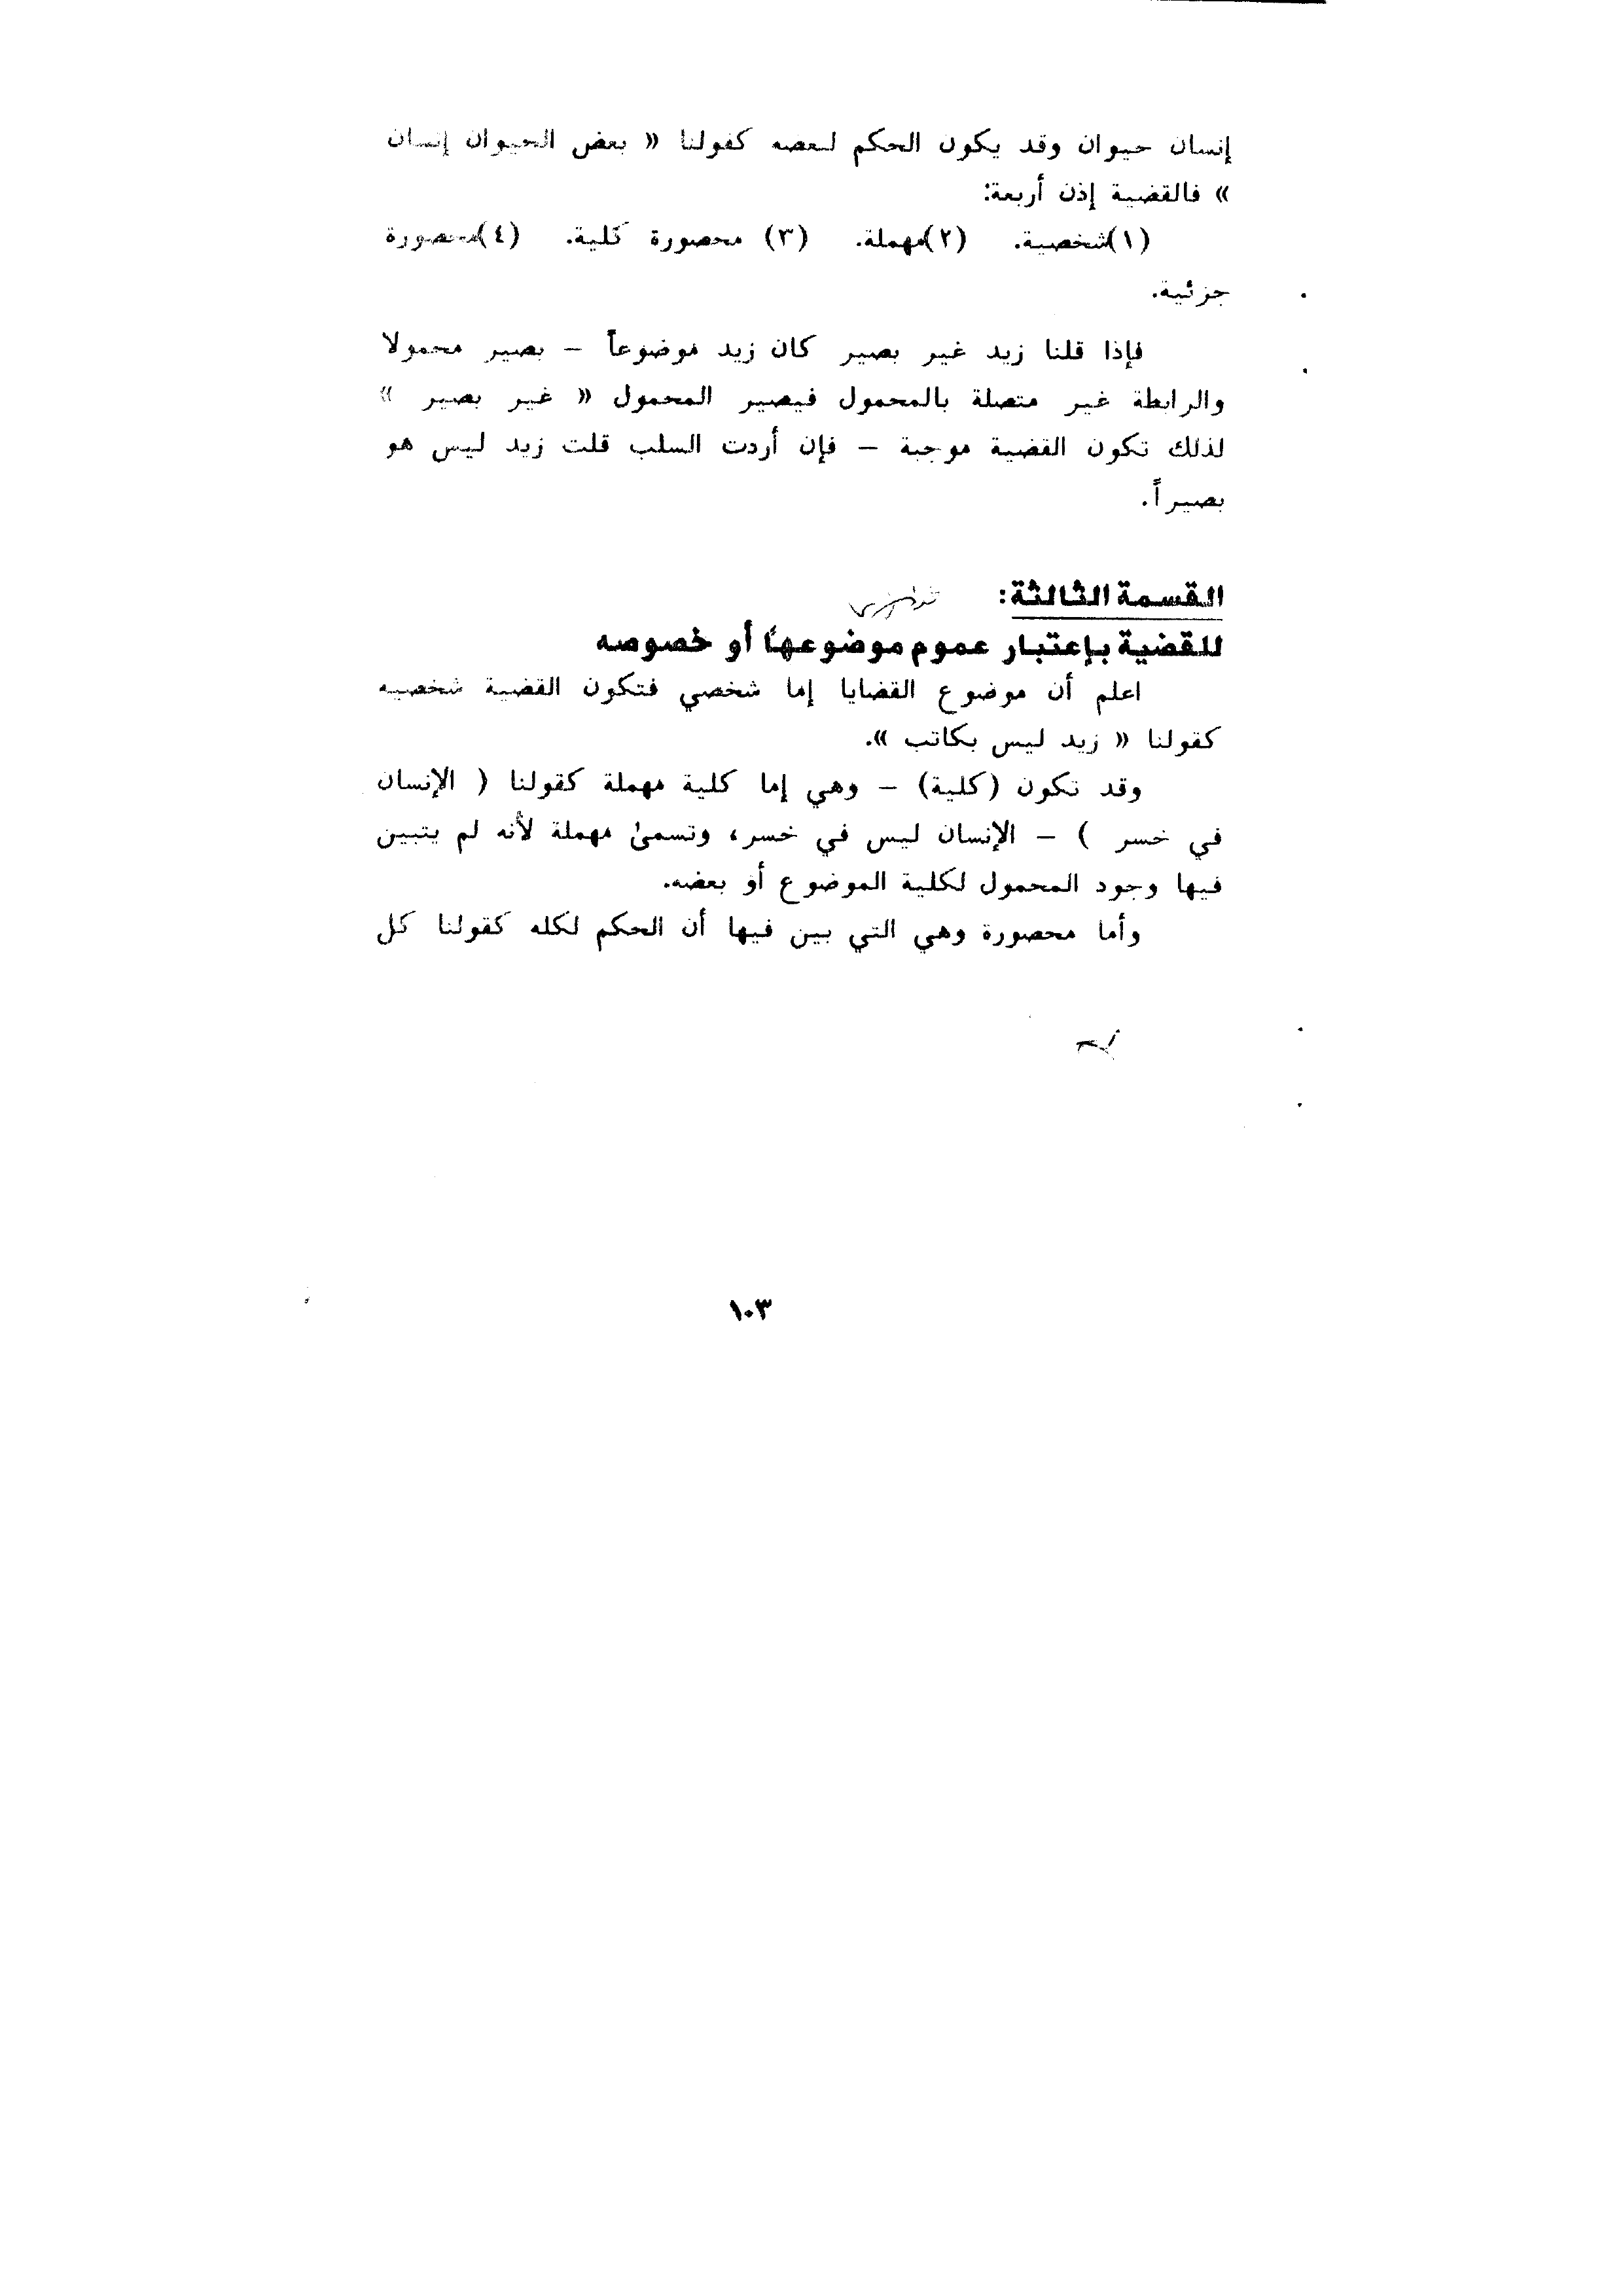 إنسان حيوان وقد يكون الحكم لبعضه كقولنا « بعض الحيوان إنسان
» فالقضية إذن أربعة:
(١)شخصية. (٢)مهملة. (٣) محصورة كلية. (٤)محصورة
جزئية.
فإذا قلنا زيد غير بصير كان زيد موضوعاً – بصير محمولا
والرابطة غير متصلة بالمحمول فيصير المحمول « غير بصير »
لذلك تكون القضية موجبة – فإن أردت السلب قلت زيد ليس هو
بصيراً.
القسمة الثالثة:
للقضية بإعتبار عموم موضوعها أو خصوصه
اعلم أن موضوع القضايا إما شخصي فتكون القضية شخصيه
كقولنا « زيد ليس بكاتب ».
وقد تكون (كلية) – وهي إما كلية مهملة كقولنا ( الإنسان
في خسر ) – الإنسان ليس في خسر، وتسمىٰ مهملة لأنه لم يتبين
فيها وجود المحمول لكلية الموضوع أو بعضه.
وأما محصورة وهي التي بين فيها أن الحكم لكله كقولنا كل
١٠٣